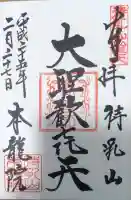 奉拝 待乳山
大聖歓喜天
本龍院
平成二十五年
二月二十七日